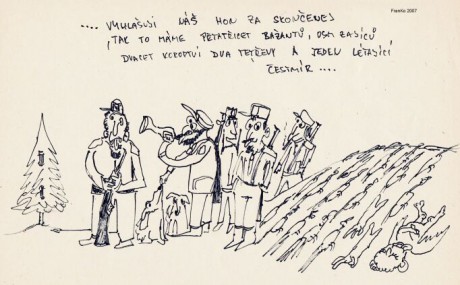 Frantks 2007
.... VYHLAŠUJI NÁŠ HON ZA SKONČENEJ
, TAK TO MÁME PĚTATŘICET BAŽANTŮ, OSM ZAJÍCŮ
DVACET KOROPTVÍ DVA TETŘEVY A JEDEN LÉTAJÍCÍ
ČESTMÍR ....